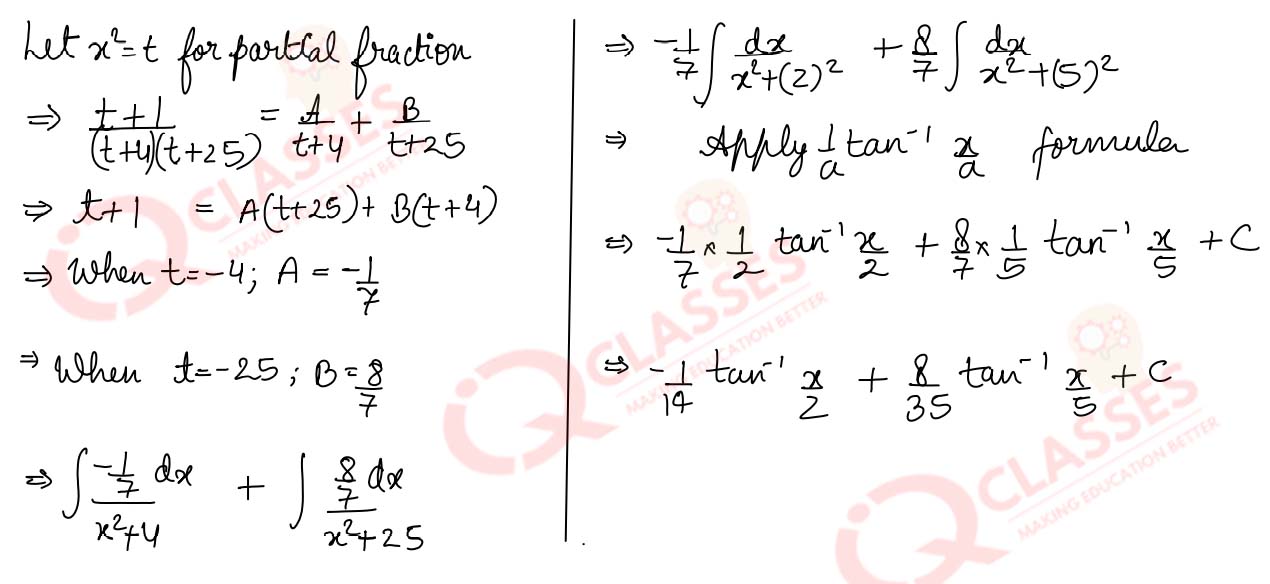 Let x² = t for partial fraction
⇒ t+1/(t+4)(t+25) = A/t+4 + B/t+25
⇒ t+1 = A(t+25) + B(t+4)
⇒ When t=-4; A = -1/7
⇒ When t=-25; B = 8/7
⇒ ∫ -1/7 dx/x²+4 + ∫ 8/7 dx/x²+25
⇒ -1/7 ∫ dx/x²+(2)² + 8/7 ∫ dx/x²+(5)²
⇒ Apply 1/a tan⁻¹ x/a formula
⇒ -1/7 × 1/2 tan⁻¹ x/2 + 8/7 × 1/5 tan⁻¹ x/5 + C
⇒ -1/14 tan⁻¹ x/2 + 8/35 tan⁻¹ x/5 + C
CLASSES
MAKING EDUCATION BETTER
CLASSES
MAKING EDUCATION BETTER
CLASSES
MAKING EDUCATION BETTER